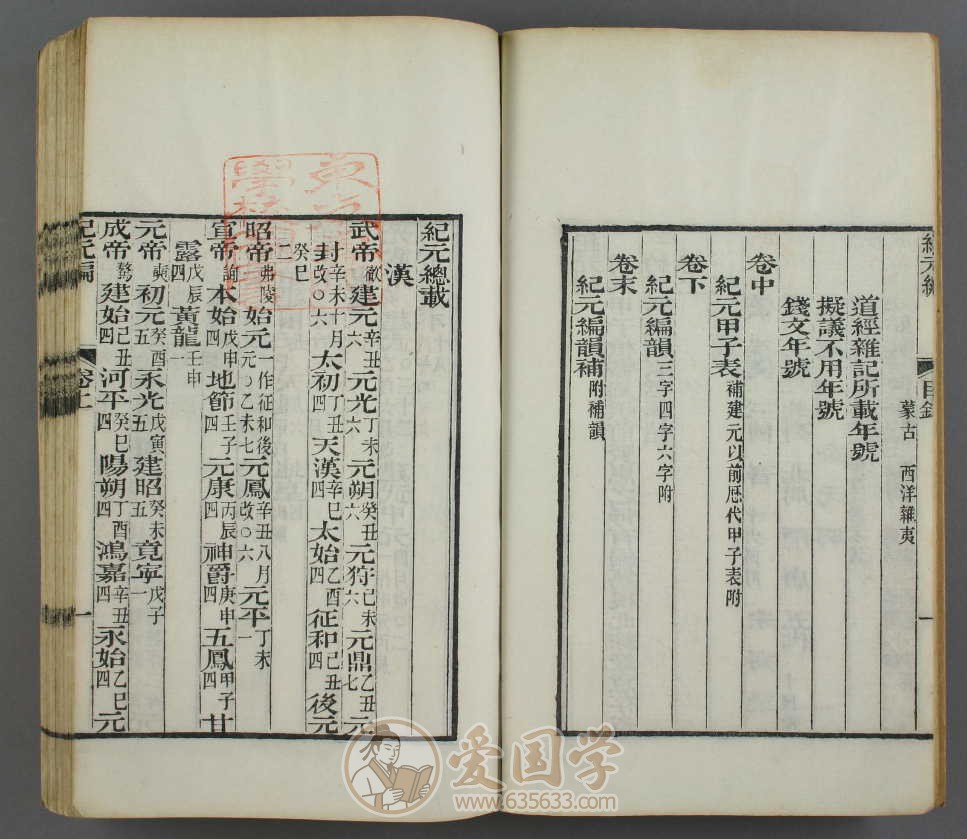 紀元編
目錄
一
蒙古 西洋雜夷
道經雜記所載年號
擬議不用年號
錢文年號
卷中
紀元甲子表補建元以前歷代甲子表附
卷下
紀元編韻三字四字六字附
卷末
紀元編韻補附補韻
紀元總載
漢
武帝徹建元辛丑六元光丁未六元朔癸丑六元狩己未六元鼎乙丑七元
封辛未十月改〇六太初丁丑四天漢辛巳四太始乙酉四征和己丑四後元
癸巳二
昭帝弗陵始元一作征和後元〇乙未七元鳳辛丑八月改〇六元平丁未一
宣帝詢本始戊申四地節壬子四元康丙辰四神爵庚申四五鳳甲子四甘
露戊辰四黃龍壬申一
元帝奭初元癸酉五永光戊寅五建昭癸未五竟寧戊子一
成帝驁建始己丑四河平癸巳四陽朔丁酉四鴻嘉辛丑四永始乙巳四元
紀元編
卷上
一
爱国学
www.635633.com